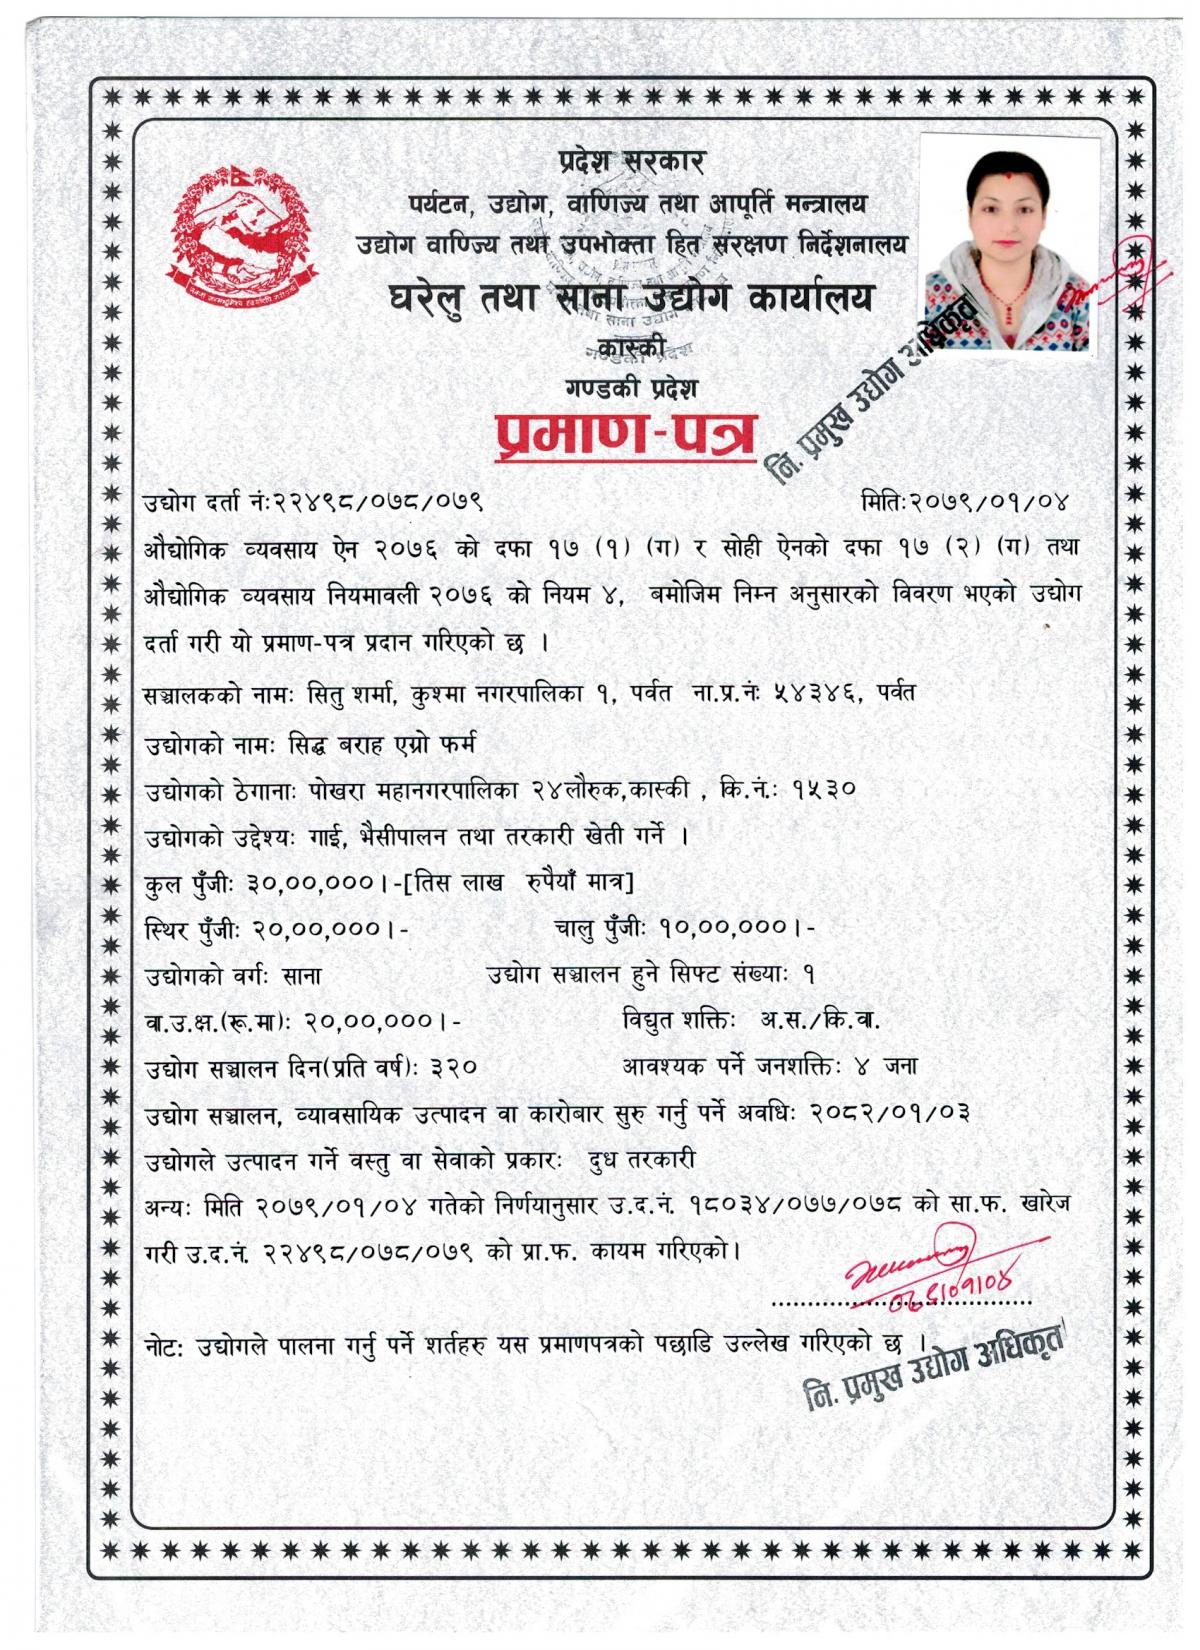 प्रदेश सरकार
पर्यटन, उद्योग, वाणिज्य तथा आपूर्ति मन्त्रालय
उद्योग वाणिज्य तथा उपभोक्ता हित संरक्षण निर्देशनालय
घरेलु तथा साना उद्योग कार्यालय
कास्की
गण्डकी प्रदेश
प्रमाण-पत्र
नि. प्रमुख उद्योग अधिकृत
उद्योग दर्ता नं:२२४९८/०७८/०७९ मिति:२०७९/०१/०४
औद्योगिक व्यवसाय ऐन २०७६ को दफा १७ (१) (ग) र सोही ऐनको दफा १७ (२) (ग) तथा
औद्योगिक व्यवसाय नियमावली २०७६ को नियम ४, बमोजिम निम्न अनुसारको विवरण भएको उद्योग
दर्ता गरी यो प्रमाण-पत्र प्रदान गरिएको छ ।
सञ्चालकको नामः सितु शर्मा, कुश्मा नगरपालिका १, पर्वत ना.प्र.नंः ५४३४६, पर्वत
उद्योगको नामः सिद्ध बराह एग्रो फर्म
उद्योगको ठेगानाः पोखरा महानगरपालिका २४लौरुक,कास्की , कि.नं.: १५३०
उद्योगको उद्देश्यः गाई, भैसीपालन तथा तरकारी खेती गर्ने ।
कुल पुँजीः ३०,००,०००।-[तिस लाख रुपैयाँ मात्र]
स्थिर पुँजीः २०,००,०००।- चालु पुँजीः १०,००,०००।-
उद्योगको वर्गः साना उद्योग सञ्चालन हुने सिफ्ट संख्याः १
वा.उ.क्ष.(रू.मा)ः २०,००,०००।- विद्युत शक्तिः अ.स./कि.वा.
उद्योग सञ्चालन दिन(प्रति वर्ष)ः ३२० आवश्यक पर्ने जनशक्तिः ४ जना
उद्योग सञ्चालन, व्यावसायिक उत्पादन वा कारोबार सुरु गर्नु पर्ने अवधिः २०८२/०१/०३
उद्योगले उत्पादन गर्ने वस्तु वा सेवाको प्रकारः दुध तरकारी
अन्यः मिति २०७९/०१/०४ गतेको निर्णयानुसार उ.द.नं. १८०३४/०७७/०७८ को सा.फ. खारेज
गरी उ.द.नं. २२४९८/०७८/०७९ को प्रा.फ. कायम गरिएको।
नोट: उद्योगले पालना गर्नु पर्ने शर्तहरु यस प्रमाणपत्रको पछाडि उल्लेख गरिएको छ ।
नि. प्रमुख उद्योग अधिकृत